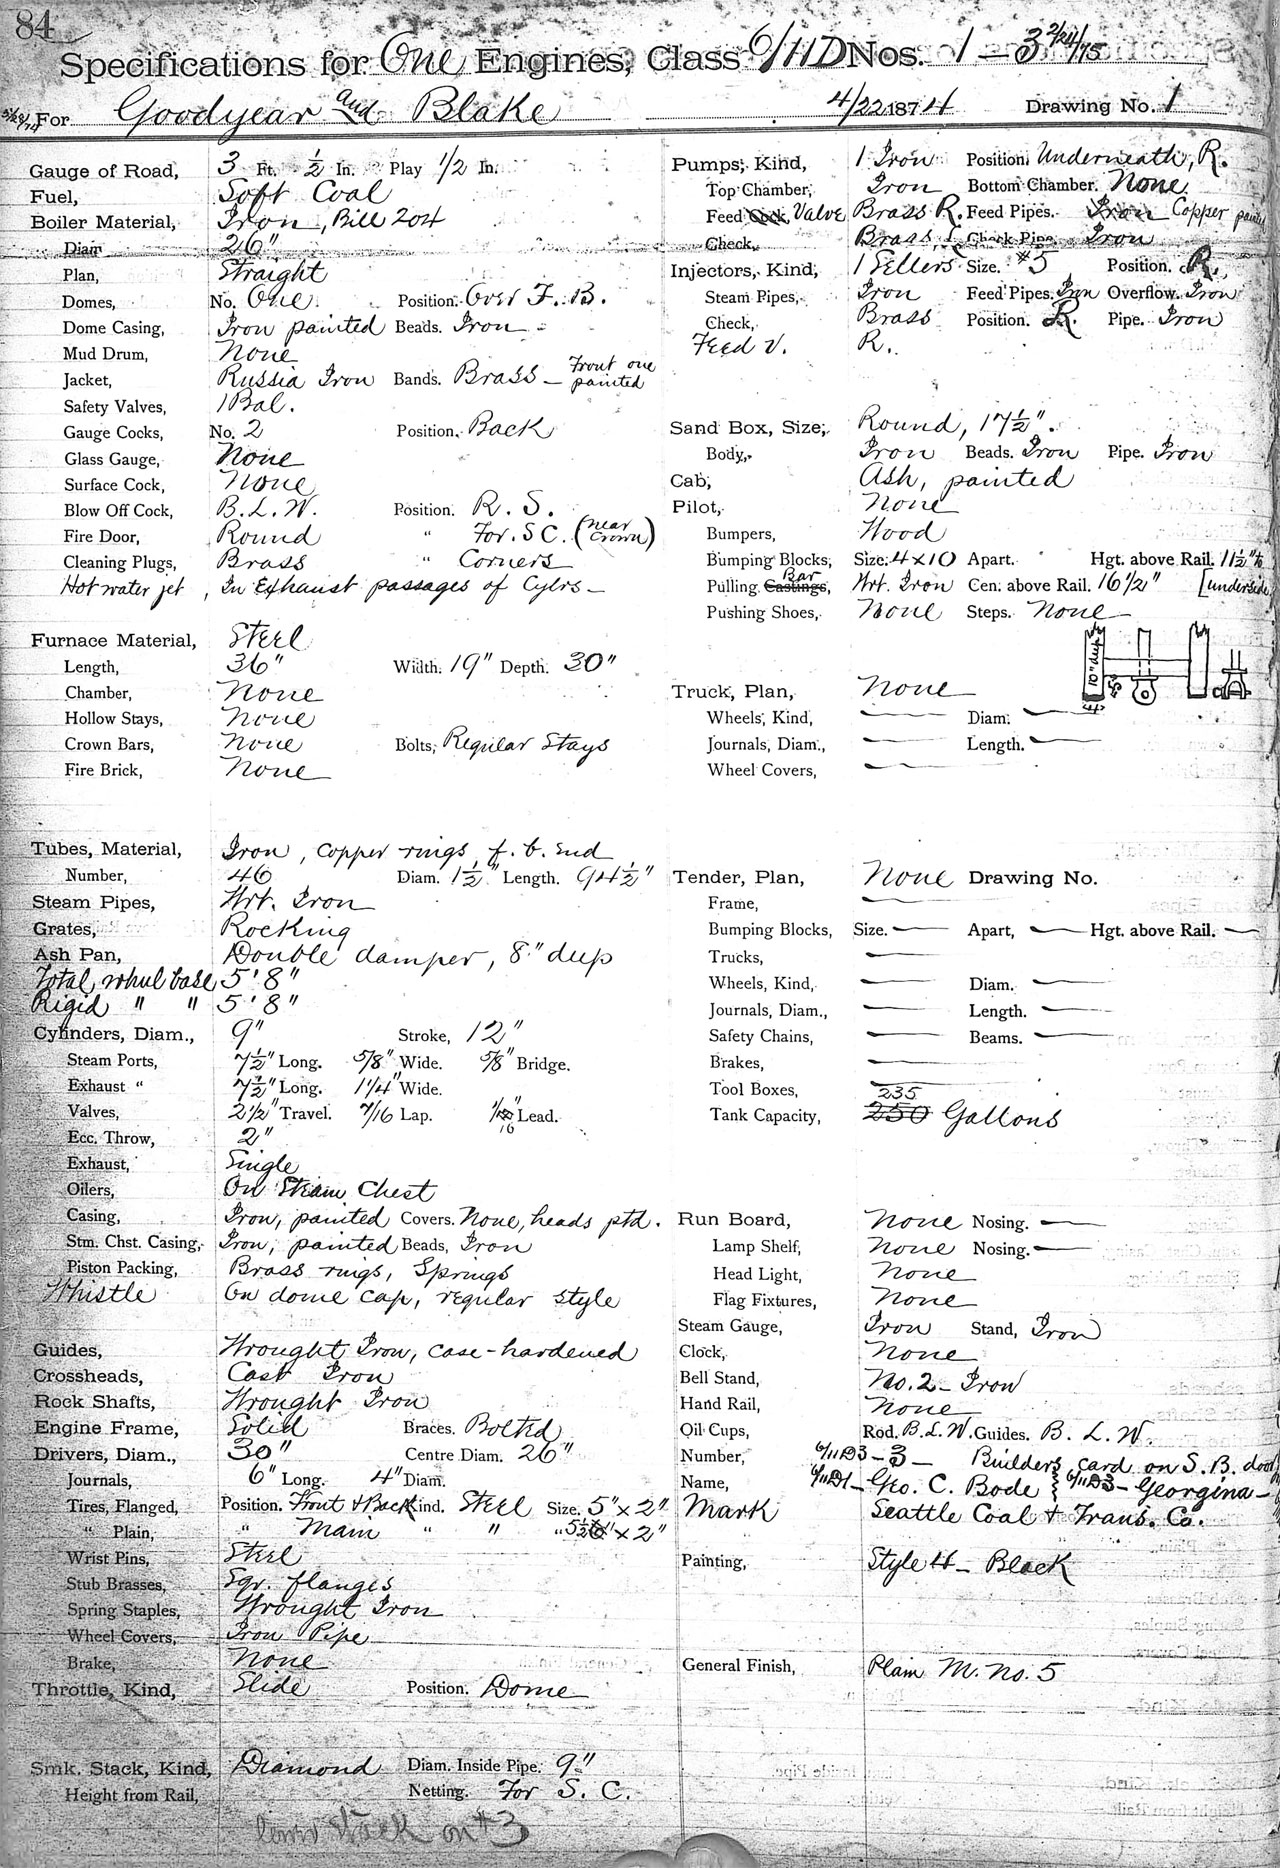 84
Specifications for One Engines, Class 6/11D Nos. 1 – 3 2/24/75
5/28/74 For Goodyear and Blake 4/22 1874 Drawing No. 1
Gauge of Road, 3 Ft. ½ In. Play 1/2 In.
Fuel, Soft Coal
Boiler Material, Iron, Bill 204
Diam 26"
Plan, Straight
Domes, No. One Position. Over F. B.
Dome Casing, Iron painted Beads. Iron
Mud Drum, None
Jacket, Russia Iron Bands. Brass – Front one painted
Safety Valves, 1 Bal.
Gauge Cocks, No. 2 Position. Back
Glass Gauge, None
Surface Cock, None
Blow Off Cock, B. L. W. Position. R. S.
Fire Door, Round " For. S C. (near Crown)
Cleaning Plugs, Brass " Corners
Hot water jet, In Exhaust passages of Cylrs –
Furnace Material, Steel
Length, 36" Width. 19" Depth. 30"
Chamber, None
Hollow Stays, None
Crown Bars, None Bolts, Regular Stays
Fire Brick, None
Tubes, Material, Iron, copper rings f. b. End
Number, 46 Diam. 1½" Length. 94½"
Steam Pipes, Wrt. Iron
Grates, Rocking
Ash Pan, Double damper, 8" deep
Total wheel base 5' 8"
Rigid " " 5' 8"
Cylinders, Diam., 9" Stroke, 12"
Steam Ports, 7½" Long. 5/8" Wide. 5/8" Bridge.
Exhaust " 7½" Long. 1¼" Wide.
Valves, 2½" Travel. 7/16 Lap. 1/16" Lead.
Ecc. Throw, 2"
Exhaust, Single
Oilers, On Steam Chest
Casing, Iron, painted Covers. None, heads ptd.
Stm. Chst. Casing, Iron, painted Beads, Iron
Piston Packing, Brass rings, Springs
Whistle On dome cap, regular style
Guides, Wrought Iron, case-hardened
Crossheads, Cast Iron
Rock Shafts, Wrought Iron
Engine Frame, Solid Braces. Bolted
Drivers, Diam., 30" Centre Diam. 26"
Journals, 6" Long. 4" Diam.
Tires, Flanged, Position. Front & Back Kind. Steel Size. 5" x 2"
" Plain, " Main " " " 5½" x 2"
Wrist Pins, Steel
Stub Brasses, Sqr. flanges
Spring Staples, Wrought Iron
Wheel Covers, Iron Pipe
Brake, None
Throttle, Kind, Slide Position. Dome
Smk. Stack, Kind, Diamond Diam. Inside Pipe. 9"
Height from Rail, Netting. For S. C.
stack on #3
Pumps, Kind, 1 Iron Position. Underneath, R.
Top Chamber, Iron Bottom Chamber. None
Feed Cock, Valve Brass R. Feed Pipes. Iron Copper painted
Check, Brass, L Check Pipe. Iron
Injectors, Kind, 1 Sellers Size. #5 Position. R.
Steam Pipes, Iron Feed Pipes. Iron Overflow. Iron
Check, Brass Position. R. Pipe. Iron
Feed V. R.
Sand Box, Size, Round, 17½".
Body, Iron Beads. Iron Pipe. Iron
Cab, Ash, painted
Pilot, None
Bumpers, Wood
Bumping Blocks, Size. 4 x 10 Apart. Hgt. above Rail. 11½" to
Pulling Castings, Bar Wrt. Iron Cen. above Rail. 16½" [underside
Pushing Shoes, None Steps. None
10" deep
5"
4"
Truck, Plan, None
Wheels, Kind, — Diam. —
Journals, Diam., — Length. —
Wheel Covers, —
Tender, Plan, None Drawing No.
Frame, —
Bumping Blocks, Size. — Apart, — Hgt. above Rail. —
Trucks, —
Wheels, Kind, — Diam. —
Journals, Diam., — Length. —
Safety Chains, — Beams. —
Brakes, —
Tool Boxes, —
235
Tank Capacity, 250 Gallons
Run Board, None Nosing. —
Lamp Shelf, None Nosing. —
Head Light, None
Flag Fixtures, None
Steam Gauge, Iron Stand, Iron
Clock, None
Bell Stand, No. 2 – Iron
Hand Rail, None
Oil Cups, Rod. B. L. W. Guides. B. L. W.
Number, 6/11D3 – 3 – Builders card on S. B. door
Name, 6/11D1 – Geo. C. Bode 6/11D3 – Georgina –
Mark Seattle Coal & Trans. Co.
Painting, Style 4 – Black
General Finish, Plain M. No. 5